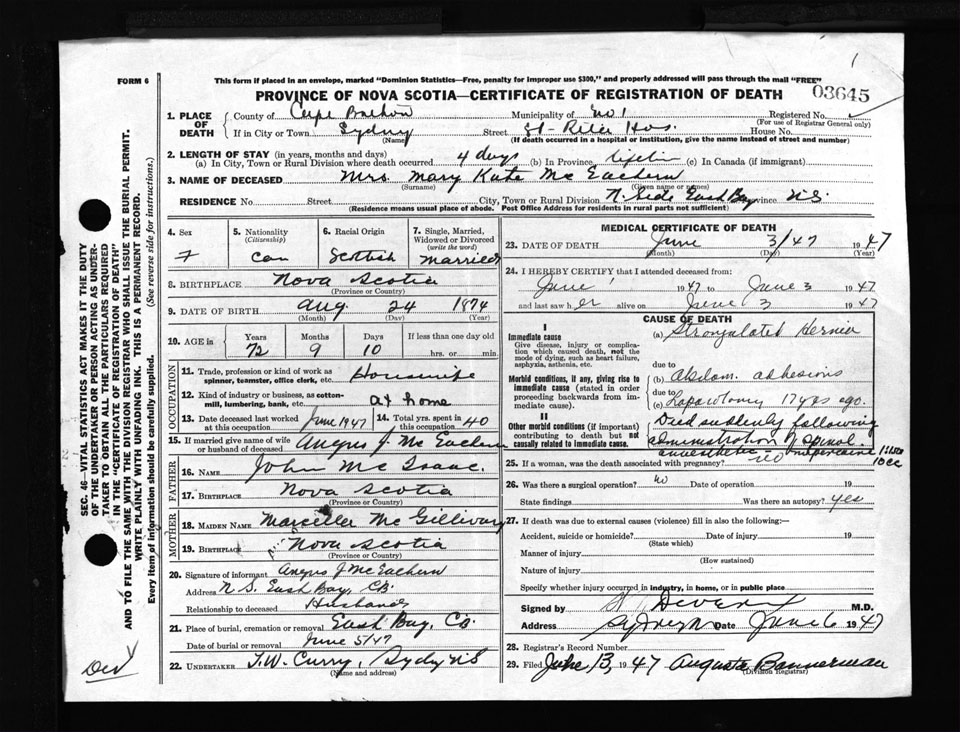 1
FORM 6
This form if placed in an envelope, marked "Dominion Statistics—Free, penalty for improper use $300," and properly addressed will pass through the mail "FREE"
PROVINCE OF NOVA SCOTIA—CERTIFICATE OF REGISTRATION OF DEATH
03645
1. PLACE OF DEATH
County of Cape Breton Municipality of No 1 Registered No.
(For use of Registrar General only)
If in City or Town Sydney Street St- Rita Hos. House No.
(Name) (If death occurred in a hospital or institution, give the name instead of street and number)
2. LENGTH OF STAY (in years, months and days)
(a) In City, Town or Rural Division where death occurred 4 days (b) In Province Lifetime (c) In Canada (if immigrant)
3. NAME OF DECEASED Mrs. Mary Kate Mc Eachern
(Surname) (Given name or names)
RESIDENCE No. Street City, Town or Rural Division N. Side East Bay Province N.S.
(Residence means usual place of abode. Post Office Address for residents in rural parts not sufficient)
4. Sex F
5. Nationality (Citizenship) Can
6. Racial Origin Scottish
7. Single, Married, Widowed or Divorced (write the word) Married
8. BIRTHPLACE Nova Scotia
(Province or Country)
9. DATE OF BIRTH Aug 24 1874
(Month) (Day) (Year)
10. AGE in Years Months Days If less than one day old
72 9 10 hrs. or min.
OCCUPATION
11. Trade, profession or kind of work as spinner, teamster, office clerk, etc. Housewife
12. Kind of industry or business, as cotton-mill, lumbering, bank, etc. at home
13. Date deceased last worked at this occupation June 1947 14. Total yrs. spent in this occupation 40
15. If married give name of wife or husband of deceased Angus J. Mc Eachern
FATHER
16. NAME John Mc Isaac.
17. BIRTHPLACE Nova Scotia
(Province or Country)
MOTHER
18. MAIDEN NAME Marcella Mc Gillivary
19. BIRTHPLACE Nova Scotia
(Province or Country)
20. Signature of informant Angus J McEachern
Address N S. East Bay, CB
Relationship to deceased Husband
21. Place of burial, cremation or removal East Bay, CB.
Date of burial or removal June 5/47
22. UNDERTAKER T.W. Curry, Sydney NS
(Name and address)
MEDICAL CERTIFICATE OF DEATH
23. DATE OF DEATH June 3/47 1947
(Month) (Day) (Year)
24. I HEREBY CERTIFY that I attended deceased from:
June 1 1947 to June 3 1947
and last saw her alive on June 3 1947
CAUSE OF DEATH
I
Immediate cause
Give disease, injury or complication which caused death, not the mode of dying, such as heart failure, asphyxia, asthenia, etc.
(a) Strangulated Hernia
due to
Morbid conditions, if any, giving rise to immediate cause (stated in order proceeding backwards from immediate cause).
(b) Abdom. adhesions
due to
(c) Laparotomy 17 yrs ago.
II
Other morbid conditions (if important) contributing to death but not causally related to immediate cause.
Died suddenly following
administration of spinal
anaesthetic
10 cc
25. If a woman, was the death associated with pregnancy? no
26. Was there a surgical operation? no Date of operation 19
State findings Was there an autopsy? yes
27. If death was due to external causes (violence) fill in also the following:—
Accident, suicide or homicide? Date of injury 19
(State which)
Manner of injury
(How sustained)
Nature of injury
Specify whether injury occurred in industry, in home, or in public place
Signed by M.D.
Address Sydney Date June 6 1947
28. Registrar's Record Number
29. Filed June 13, 1947 Augusta Bannerman
(Division Registrar)
SEC. 46—VITAL STATISTICS ACT MAKES IT THE DUTY
OF THE UNDERTAKER OR PERSON ACTING AS UNDER-
TAKER TO OBTAIN ALL THE PARTICULARS REQUIRED
IN THE "CERTIFICATE OF REGISTRATION OF DEATH"
AND TO FILE THE SAME WITH THE DIVISION REGISTRAR WHO SHALL ISSUE THE BURIAL PERMIT.
WRITE PLAINLY WITH UNFADING INK. THIS IS A PERMANENT RECORD.
Every item of information should be carefully supplied. (See reverse side for instructions.)